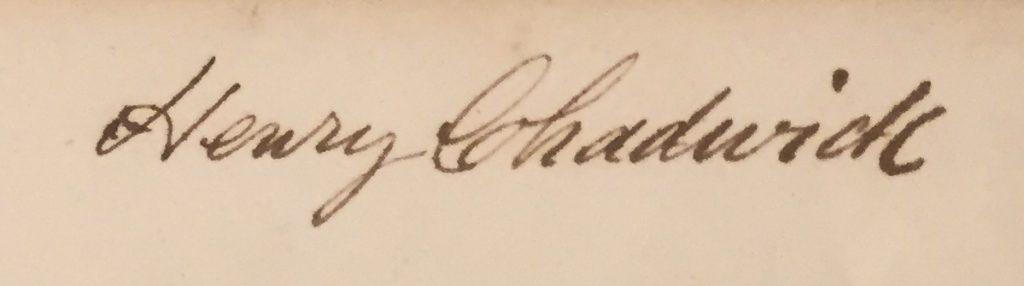 Henry Chadwick